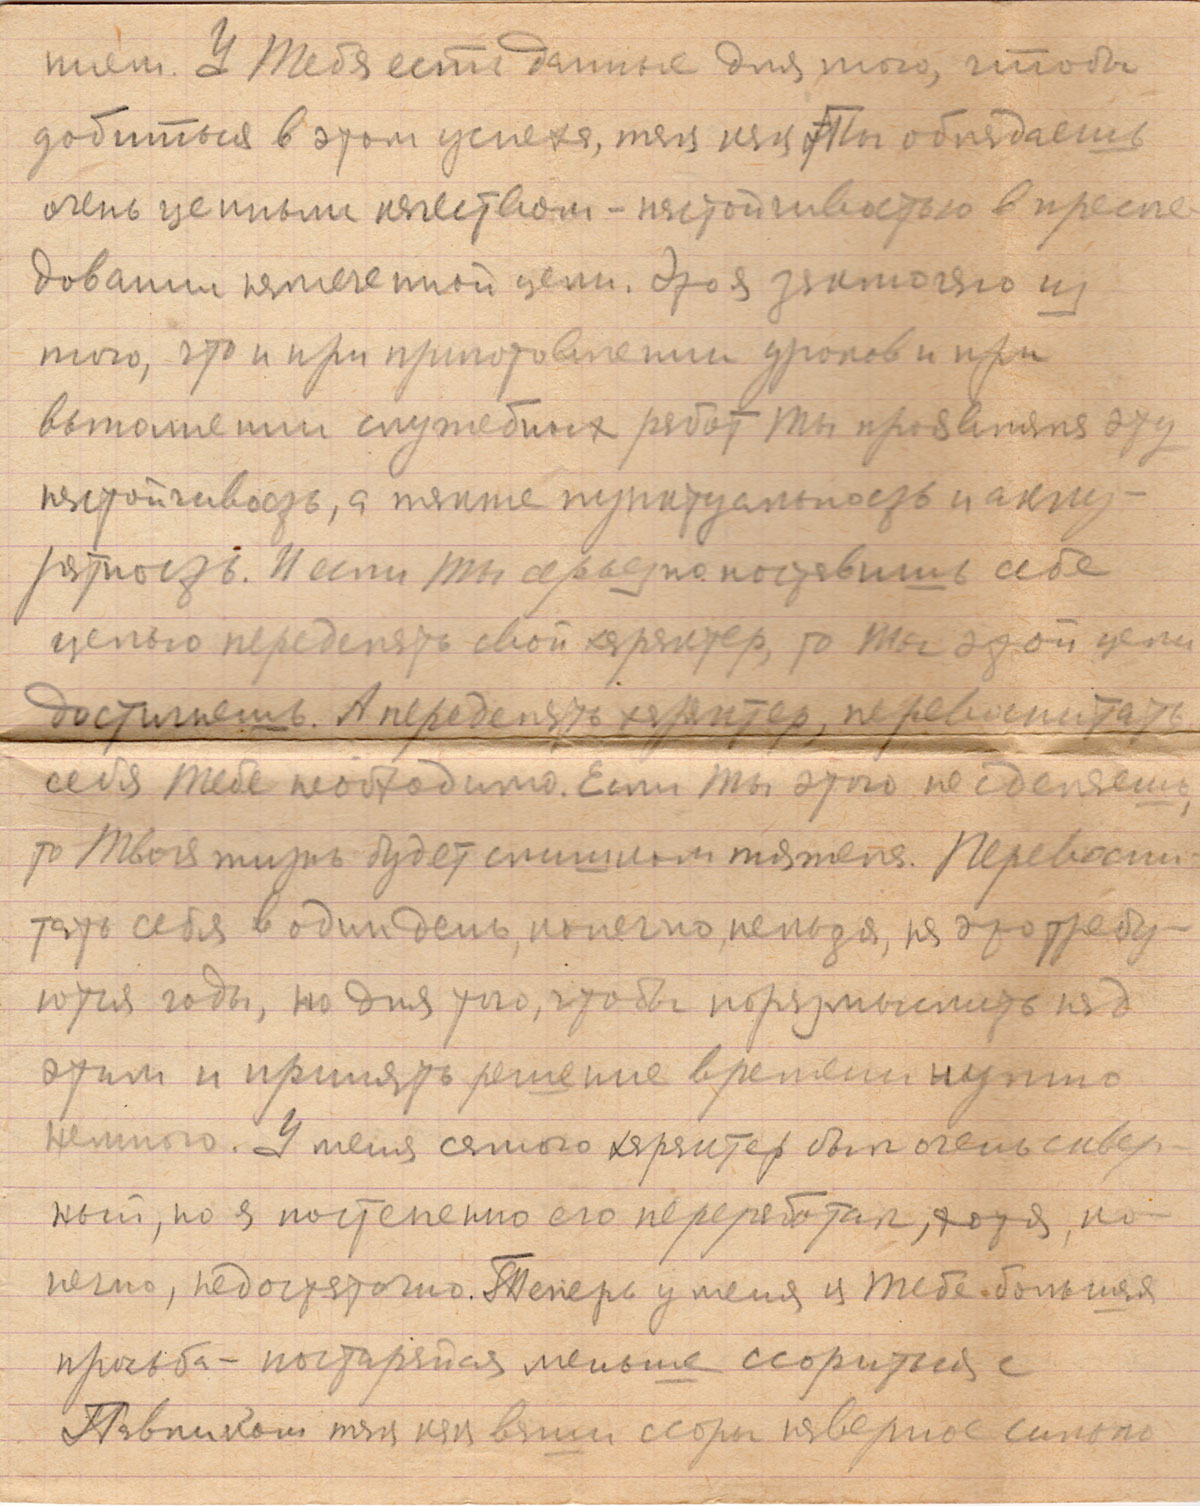 нием. У Тебя есть данные для того, чтобы
добиться в этом успеха, так как Ты обладаешь
очень ценным качеством - настойчивостью в пресле-
довании намеченной цели. Это я заключаю из
того, что и при приготовлении уроков и при
выполнении служебных работ Ты проявляла эту
настойчивость, а также пунктуальность и акку-
ратность. И если Ты серьезно поставишь себе
целью переделать свой характер, то Ты этой цели
достигнешь. А переделать характер, перевоспитать
себя Тебе необходимо. Если Ты этого не сделаешь,
то Твоя жизнь будет слишком тяжела. Перевоспи-
тать себя в один день, конечно, нельзя, на это требу-
ются годы, но для того, чтобы поразмыслить над
этим и принять решение времени нужно
немного. У меня самого характер был очень сквер-
ный, но я постепенно его переработал, хотя, ко-
нечно, недостаточно. Теперь у меня к Тебе большая
просьба - постарайся меньше ссориться с
Павликом так как ваши ссоры наверное сильно